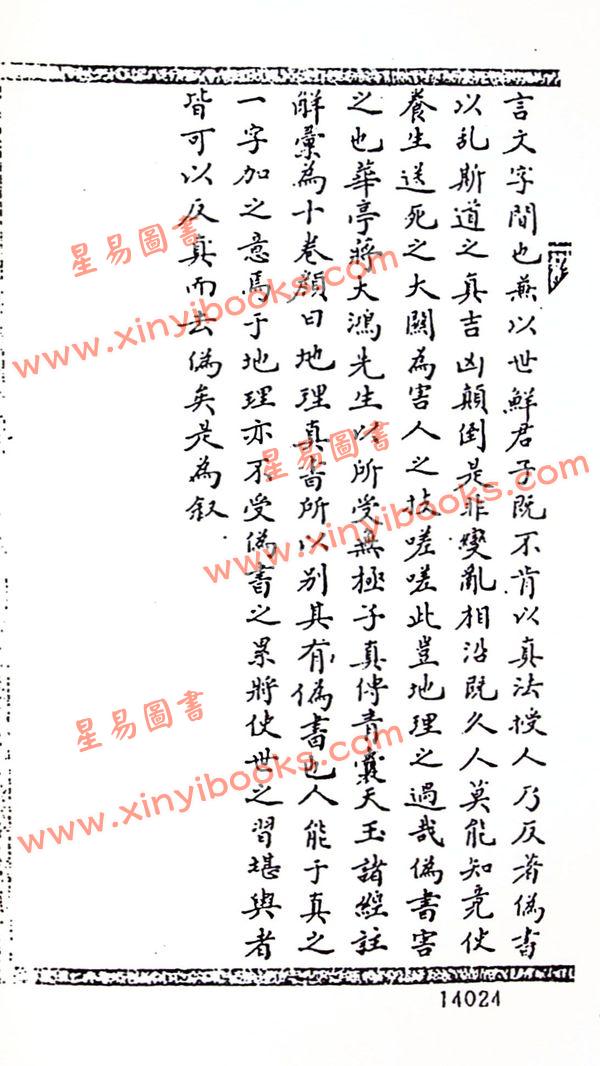 言文字間也兼以世鮮君子既不肯以真法授人乃反著偽書
以乱斯道之真吉凶顛倒是非變亂相沿既久人莫能知竟使
養生送死之大關為害人之技嗟嗟此豈地理之過哉偽書害
之也華亭蔣大鴻先生以所受無極子真傳青囊天玉諸經註
解彙為十卷顏曰地理真書所以別其有偽書也人能于真之
一字加之意焉于地理亦不受偽書之累將使世之習堪輿者
皆可以反真而去偽矣是為叙
星易圖書
www.xinyibooks.com
星易圖書
www.xinyibooks.com
星易圖書
www.xinyibooks.com
14024